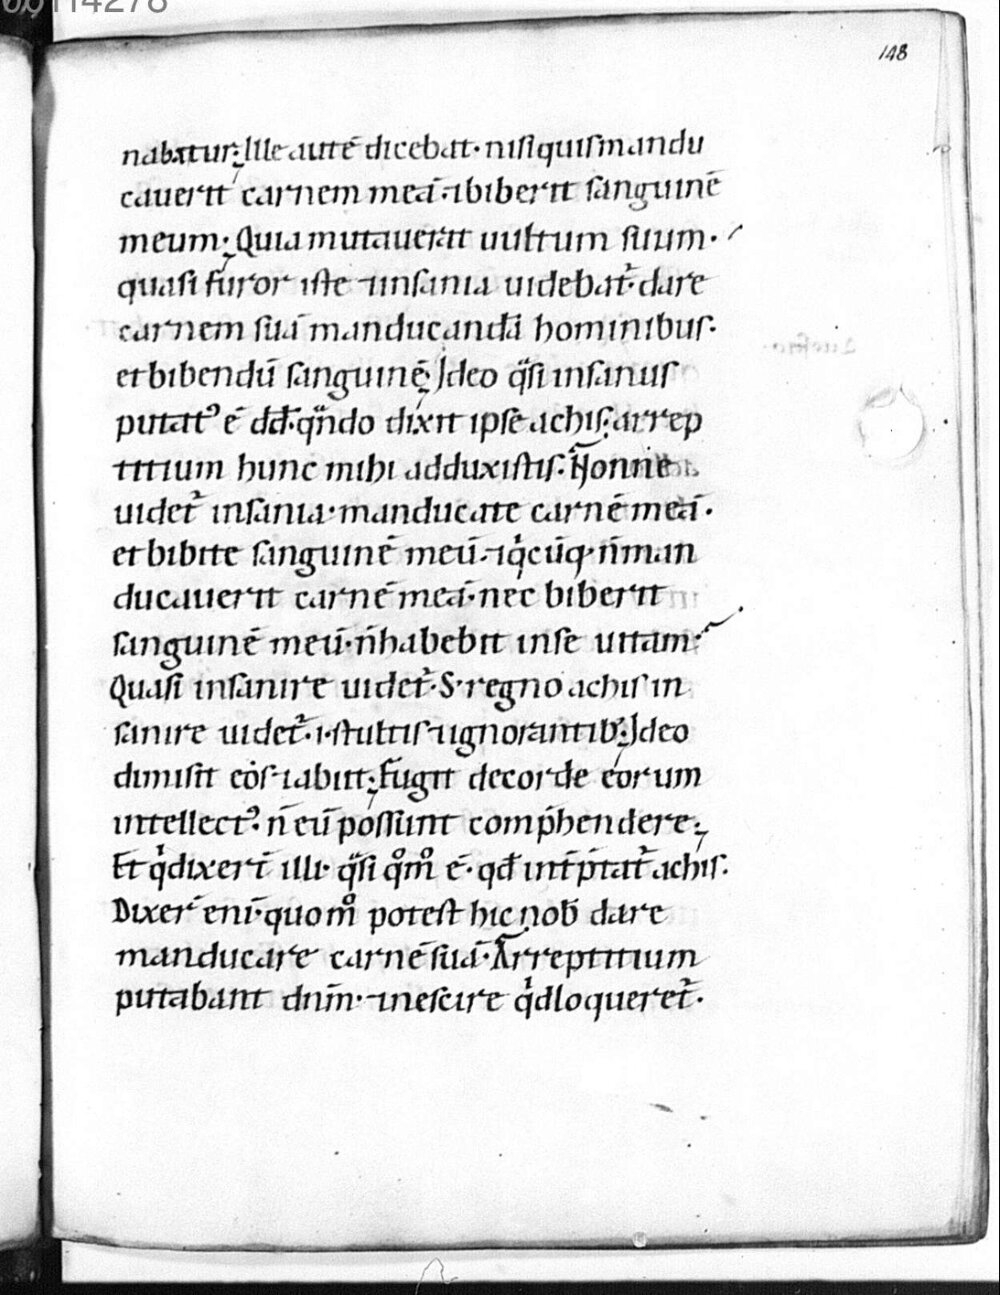 00114278
148
nabatur; Ille autē dicebat· nisi quis mandu
cauerit carnem meā· ⁊ biberit sanguinē
meum; Quia mutauerat uultum suum·
quasi furor iste ⁊ insania uidebat᷑ dare
carnem suā manducandā hominibus·
et bibendū sanguinē; Ideo qͣsi insanus
putatꝰ ē dd̄· qͣndo dixit ipse achis· arrep
titium hunc mihi adduxistis· Nonne
uidet᷑ insania· manducate carnē meā·
et bibite sanguinē meū· ⁊ qͥcūq· n̄ man
ducauerit carnē meā· nec biberit
sanguinē meū· n̄ habebit in se uitam·
Quasi insanire uidet᷑· S· regno achis in
sanire uidet᷑· i· stultis ⁊ ignorantib᷒; Ideo
dimisit eos ⁊ abiit; Fugit de corde eorum
intellectꝰ· n̄ eū possunt comp̄hendere;
Et qͥd dixer̄t illi· qͣsi qͦmͦ ē· qd̄ int̄p̄tat᷑ achis·
Dixer̄ eni· quomͦ potest hic nob̄ dare
manducare carnē suā· Arreptitium
putabant dn̄m· ⁊ nescire qͥd loqueret᷑·